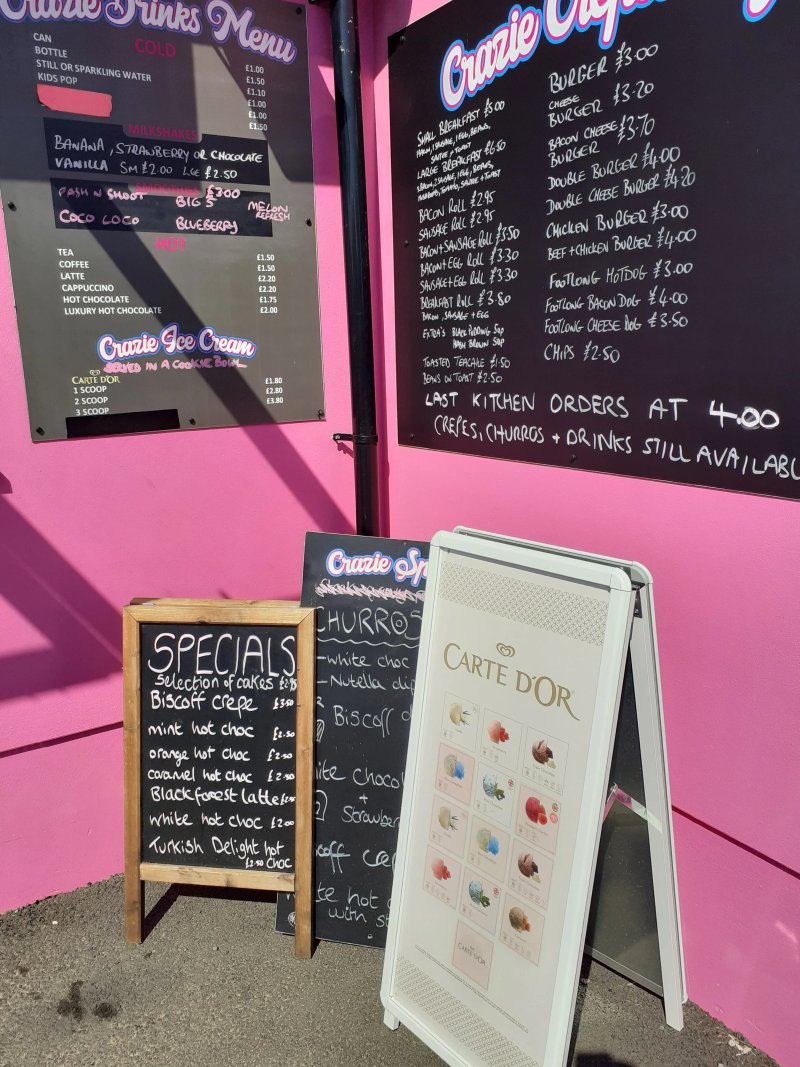 Crazie Drinks Menu
COLD
CAN £1.00
BOTTLE £1.50
STILL OR SPARKLING WATER £1.10
KIDS POP £1.00
£1.00
£1.50
MILKSHAKES
BANANA, STRAWBERRY OR CHOCOLATE
VANILLA SM £2.00 LGE £2.50
PASH N SHOOT BIG 5 £3.00
COCO LOCO BLUEBERRY MELON REFRESH
HOT
TEA £1.50
COFFEE £1.50
LATTE £2.20
CAPPUCCINO £2.20
HOT CHOCOLATE £1.75
LUXURY HOT CHOCOLATE £2.00
Crazie Ice Cream
SERVED IN A COOKIE BOWL
CARTE D'OR
1 SCOOP £1.80
2 SCOOP £2.80
3 SCOOP £3.80
Crazie
SMALL BREAKFAST £5.00
BACON, 1 SAUSAGE, 1 EGG, BEANS,
+ TOAST
LARGE BREAKFAST £6.50
BACON, 2 SAUSAGE, 1 EGG, BEANS,
TOMATO, SAUTEE + TOAST
BACON ROLL £2.95
SAUSAGE ROLL £2.95
BACON + SAUSAGE ROLL £3.50
BACON + EGG ROLL £3.30
SAUSAGE + EGG ROLL £3.30
BREAKFAST ROLL £3.80
BACON, SAUSAGE + EGG
EXTRA'S BLACK PUDDING 50p
HASH BROWN 50p
TOASTED TEACAKE £1.50
BEANS ON TOAST £2.50
BURGER £3.00
CHEESE BURGER £3.20
BACON CHEESE BURGER £3.70
DOUBLE BURGER £4.00
DOUBLE CHEESE BURGER £4.20
CHICKEN BURGER £3.00
BEEF + CHICKEN BURGER £4.00
FOOTLONG HOTDOG £3.00
FOOTLONG BACON DOG £4.00
FOOTLONG CHEESE DOG £3.50
CHIPS £2.50
LAST KITCHEN ORDERS AT 4.00
CREPES, CHURROS + DRINKS STILL AVAILABL
SPECIALS
Selection of cakes £2.95
Biscoff crepe £3.50
mint hot choc £2.50
orange hot choc £2.50
caramel hot choc £2.50
Black forest latte
white hot choc £2.00
Turkish Delight hot
£2.50 choc
Crazie Sp
CHURROS
-white choc
-Nutella dip
Biscoff
ite choco
+
Strawber
off cre
te hot
with
CARTE D'OR
CARTE D'OR